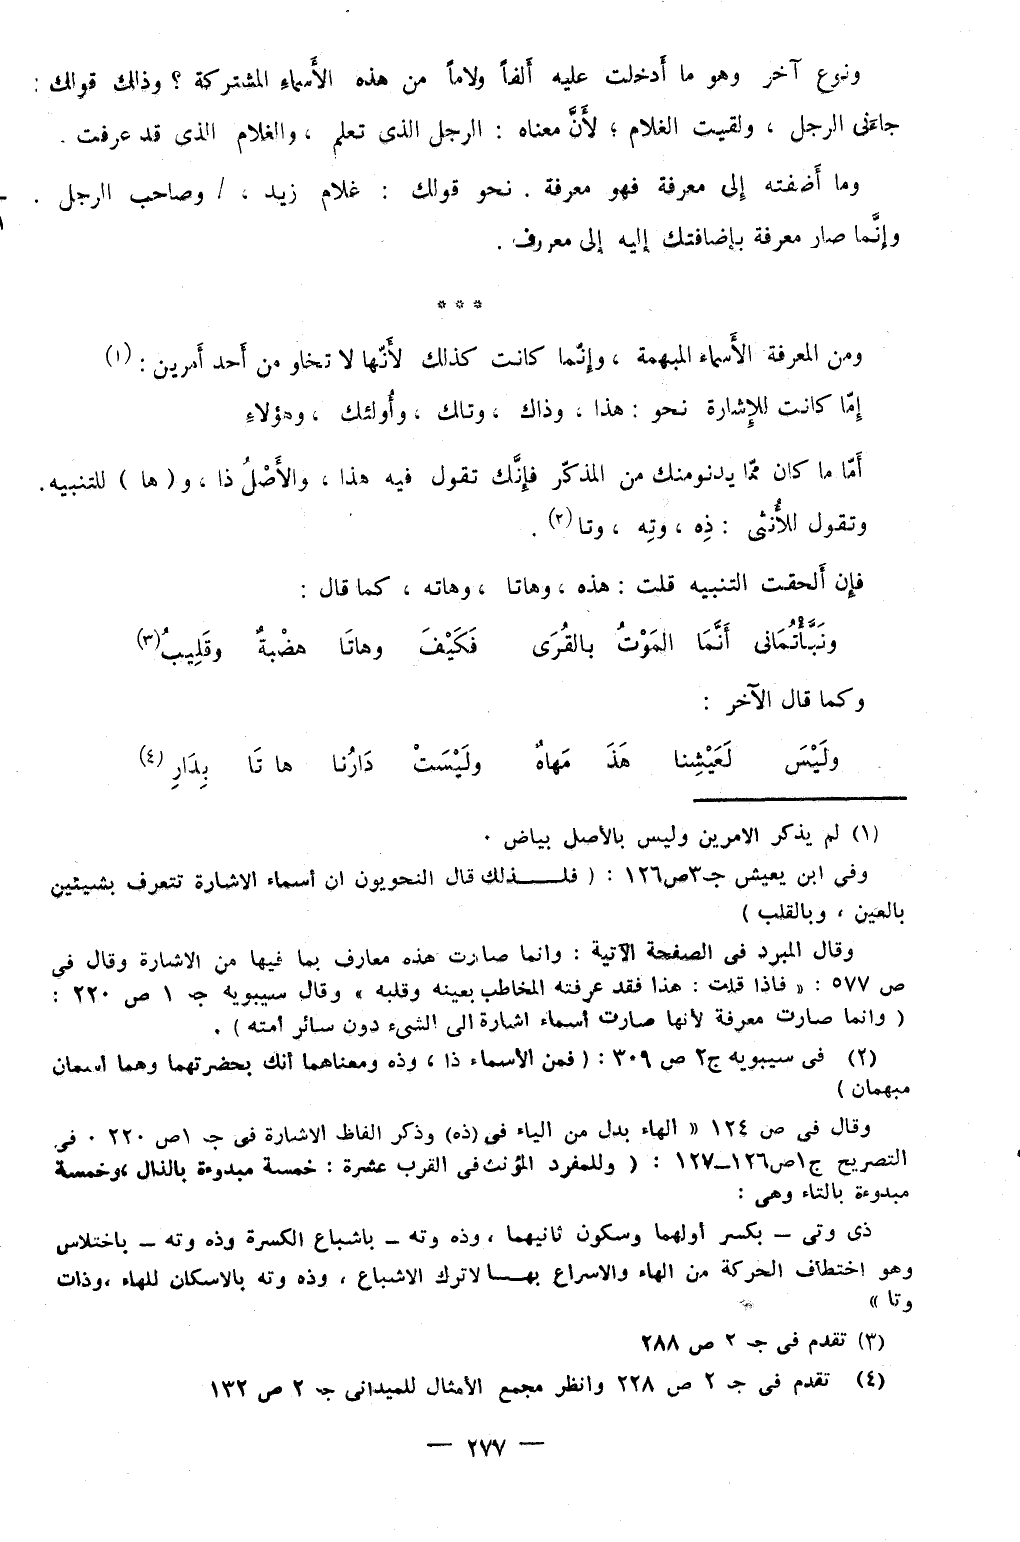 ونوع آخر وهو ما أَدخلت عليه أَلفاً ولاماً من هذه الأَسماءِ المشتركة ؟ وذالك قوالك :
جاءَنى الرجل ، ولقيت الغلام ؛ لأَنَّ معناه : الرجل الذى تعلم ، والغلام الذى قد عرفت .
وما أَضفته إلى معرفة فهو معرفة . نحو قولك : غلام زيد ، / وصاحب الرجل .
وإنَّما صار معرفة بإضافتك إليه إلى معروف .
* * *
ومن المعرفة الأَسماء المبهمة ، وإنّما كانت كذلك لأَنّها لا تخاو من أَحد أَمرين : (١)
إمّا كانت للإشارة نحو : هذا ، وذاك ، وتالك ، وأُولئك ، وهؤلاءِ
أَمّا ما كان ممّا يدنومنك من المذكّر فإنَّك تقول فيه هذا ، والأَصْلُ ذا ، و( ها ) للتنبيه .
وتقول للأُنثى : ذِه ، وتِه ، وتا (٢) .
فإن أَلحقت التنبيه قلت : هذه ، وهاتا ، وهاته ، كما قال :
ونَبَّأْتُمَانى أَنَّمَا المَوْتُ بالقُرَى فَكَيْفَ وهاتَا هضْبةٌ وقَلِيبُ (٣)
وكما قال الآخر :
ولَيْسَ لَعَيْشِنا هَذَ مَهاهٌ ولَيْسَتْ دَارُنا هاتَا بِدَارِ (٤)
(١) لم يذكر الامرين وليس بالأصل بياض ٠
وفى ابن يعيش جـ٣ص١٢٦ : ( فلـــذلك قال النحويون ان أسماء الاشارة تتعرف بشيئين
بالعين ، وبالقلب )
وقال المبرد فى الصفحة الآتية : وانما صارت هذه معارف بما فيها من الاشارة وقال فى
ص ٥٧٧ : « فاذا قلت : هذا فقد عرفته المخاطب بعينه وقلبه » وقال سيبويه جـ ١ ص ٢٢٠ :
( وانما صارت معرفة لأنها صارت أسماء اشارة الى الشىء دون سائر أمته ) .
(٢) فى سيبويه ج٢ ص ٣٠٩ : ( فمن الأسماء ذا ، وذه ومعناهما أنك بحضرتهما وهما أسمان
مبهمان )
وقال فى ص ١٢٤ « الهاء بدل من الياء فى (ذه) وذكر الفاظ الاشارة فى جـ ١ص ٢٢٠ ٠ فى
التصريح ج١ص١٢٦ــ١٢٧ : ( وللمفرد المؤنث فى القرب عشرة : خمسة مبدوءة بالذال ،وخمسة
مبدوءة بالتاء وهى :
ذى وتى ــ بكسر أولهما وسكون ثانيهما ، وذه وته ــ باشباع الكسرة وذه وته ــ باختلاس
وهو اختطاف الحركة من الهاء والاسراع بهـــا لاترك الاشباع ، وذه وته بالاسكان للهاء ،وذات
وتا »
(٣) تقدم فى جـ ٢ ص ٢٨٨
(٤) تقدم فى جـ ٢ ص ٢٢٨ وانظر مجمع الأمثال للميدانى جـ ٢ ص ١٣٢
— ٢٧٧ —